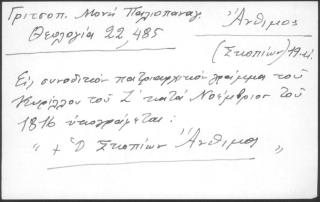 Γριτσοπ. Μονή Παλιοπαναγ.
Ἄνθιμος
Θεολογία 22, 485
(Σκοπίων) 19-αι.
Εἰς συνοδικόν πατριαρχικόν γράμμα τοῦ
Κυρίλλου τοῦ Ϛ´ κατά Νοέμβριον τοῦ
1816 ὑπογράφεται:
“ + Ὁ Σκοπίων Ἄνθιμος „